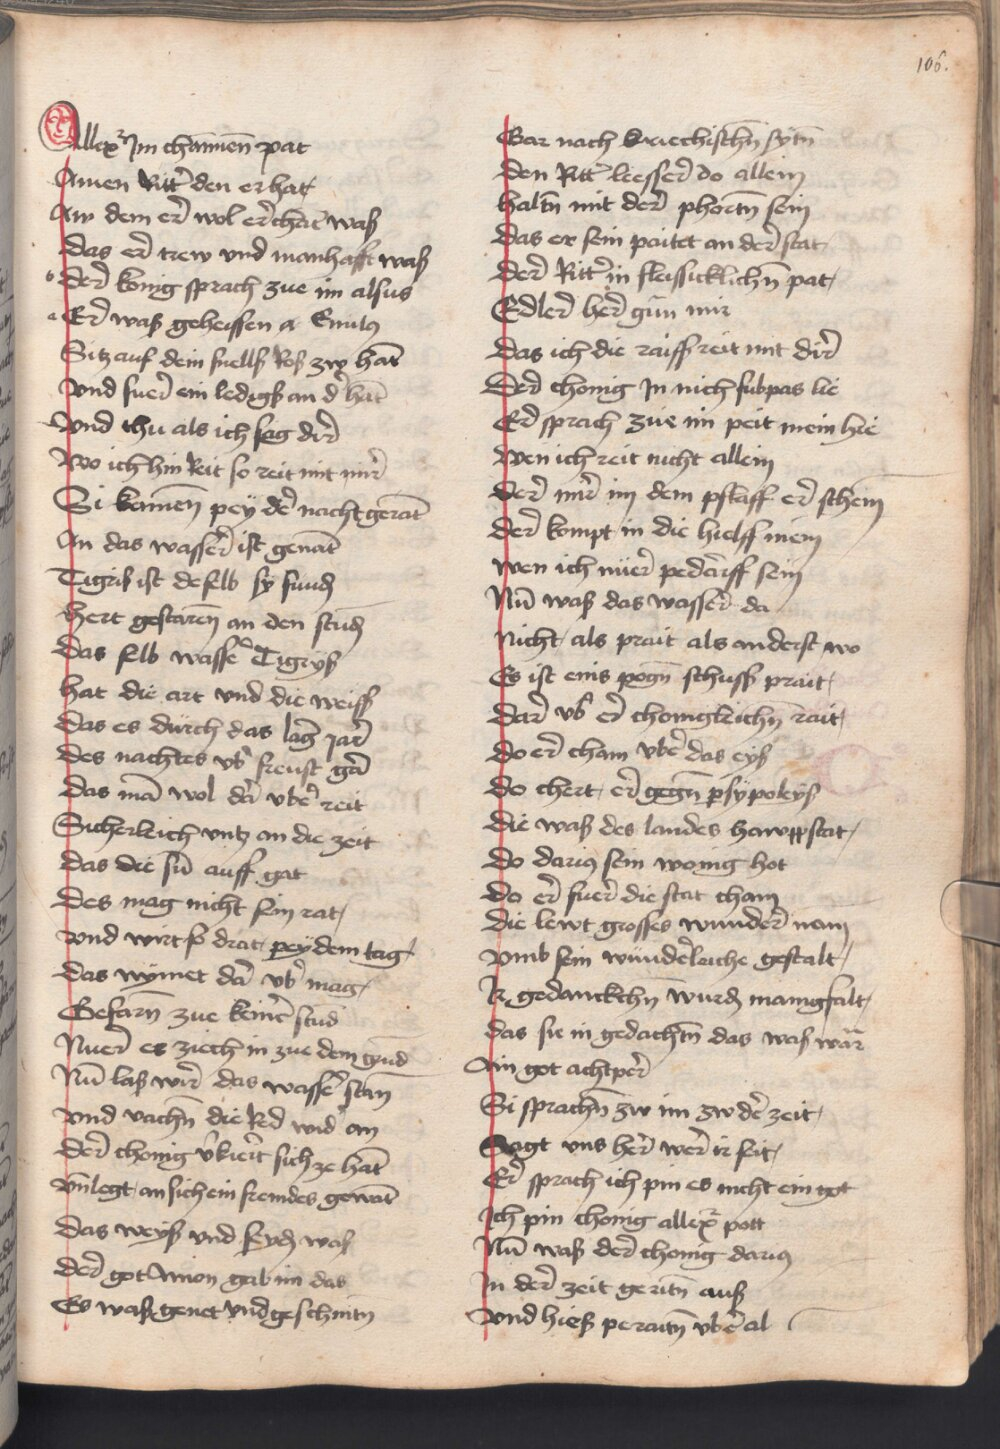 106.
Allexr Im chāmen pat
Ainen Rittr den er hat
An dem er wol erchāt waß
Das er trew vnd manhafft waß
b der konig sprach zue im alsus
a Er waß geheissen a Emulus
Sitz auf dein snellß Roß zw hāt
Vnd fuer ein ledigß an dr hāt
Vnd thu als ich sag dir
Wo ich hin Reit so reit mit mir
Si kamen pey der nacht gerāt
An das wasser ist genāt
Tigris ist deselb sy fund
hert gefrarn an den stund
Das selb wasser Tigryß
hat die art vnd die weiß
Das es dürch das lāg jar
des nachtes vbr freust gār
Das mā wol dā vber reit
Sicherleich vntz an die zeit
das die sū auff gat
des mag nicht sein rat
Vnd wirt so drat pey dem tag
Das nymet dā vbr mag
Gefarn zue keiner stund
Nuer es ziech in zue dem grūd
Nū laß wir das wasser stan
Vnd vachn die Red widr an
der chonig vkiert sich ze hāt
Vn legt an sich ein fremdes gewāt
das weyß vnd seyd waß
der got Amon gab im das
Es waß genet vnd geschnitn
Gar nach kriechischn sytn
den Rittr liesser do allein
haltn mit der phertn sein
das er sein paitet an der stat
der Rittr in fleissicklichn pat
Edler her gūn mir
das ich die raiß reit mit dir
Der chonig In nich fubpas lie
Er sprach zue im peit mein hie
wen ich reit nicht allein
der mir im dem pslaff er schein
der kompt in die hielff mein
wen ich nuer pedarff sein
Nū waß das wasser da
nicht als prait als anderst wo
Es ist enis pogn schuß prait
Dar vbr er chonigleichn rait
do er cham vber das eyß
do chert er gegn psypoleyß
die waß des landes hawppstat
do darius sein wonig hot
do er fuer die stat cham
die lewt grosses wunder nam
vmb sein wünderleiche gestalt
Ir gedanckchn wurd manigfalt
das sie in gedachtn das waß wār
Ain got achtper
Si sprachn zw im zw der zeit
Sagt vns her wer ir seit
Er sprach ich pin es nicht ein got
Ich pin chonig allexr pott
Nū waß der chonig darius
In der zeit geritn auß
Vnd hieß peraitn vber al